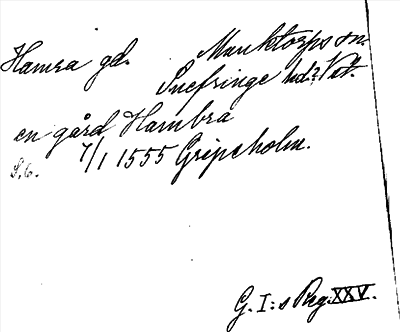 Hamra gd. Munktorps sn.
Snefringe hd. Vstm.
en gård Hambra
7/1 1555 Gripsholm.
S. 6.
G. I:s Reg. XXV.